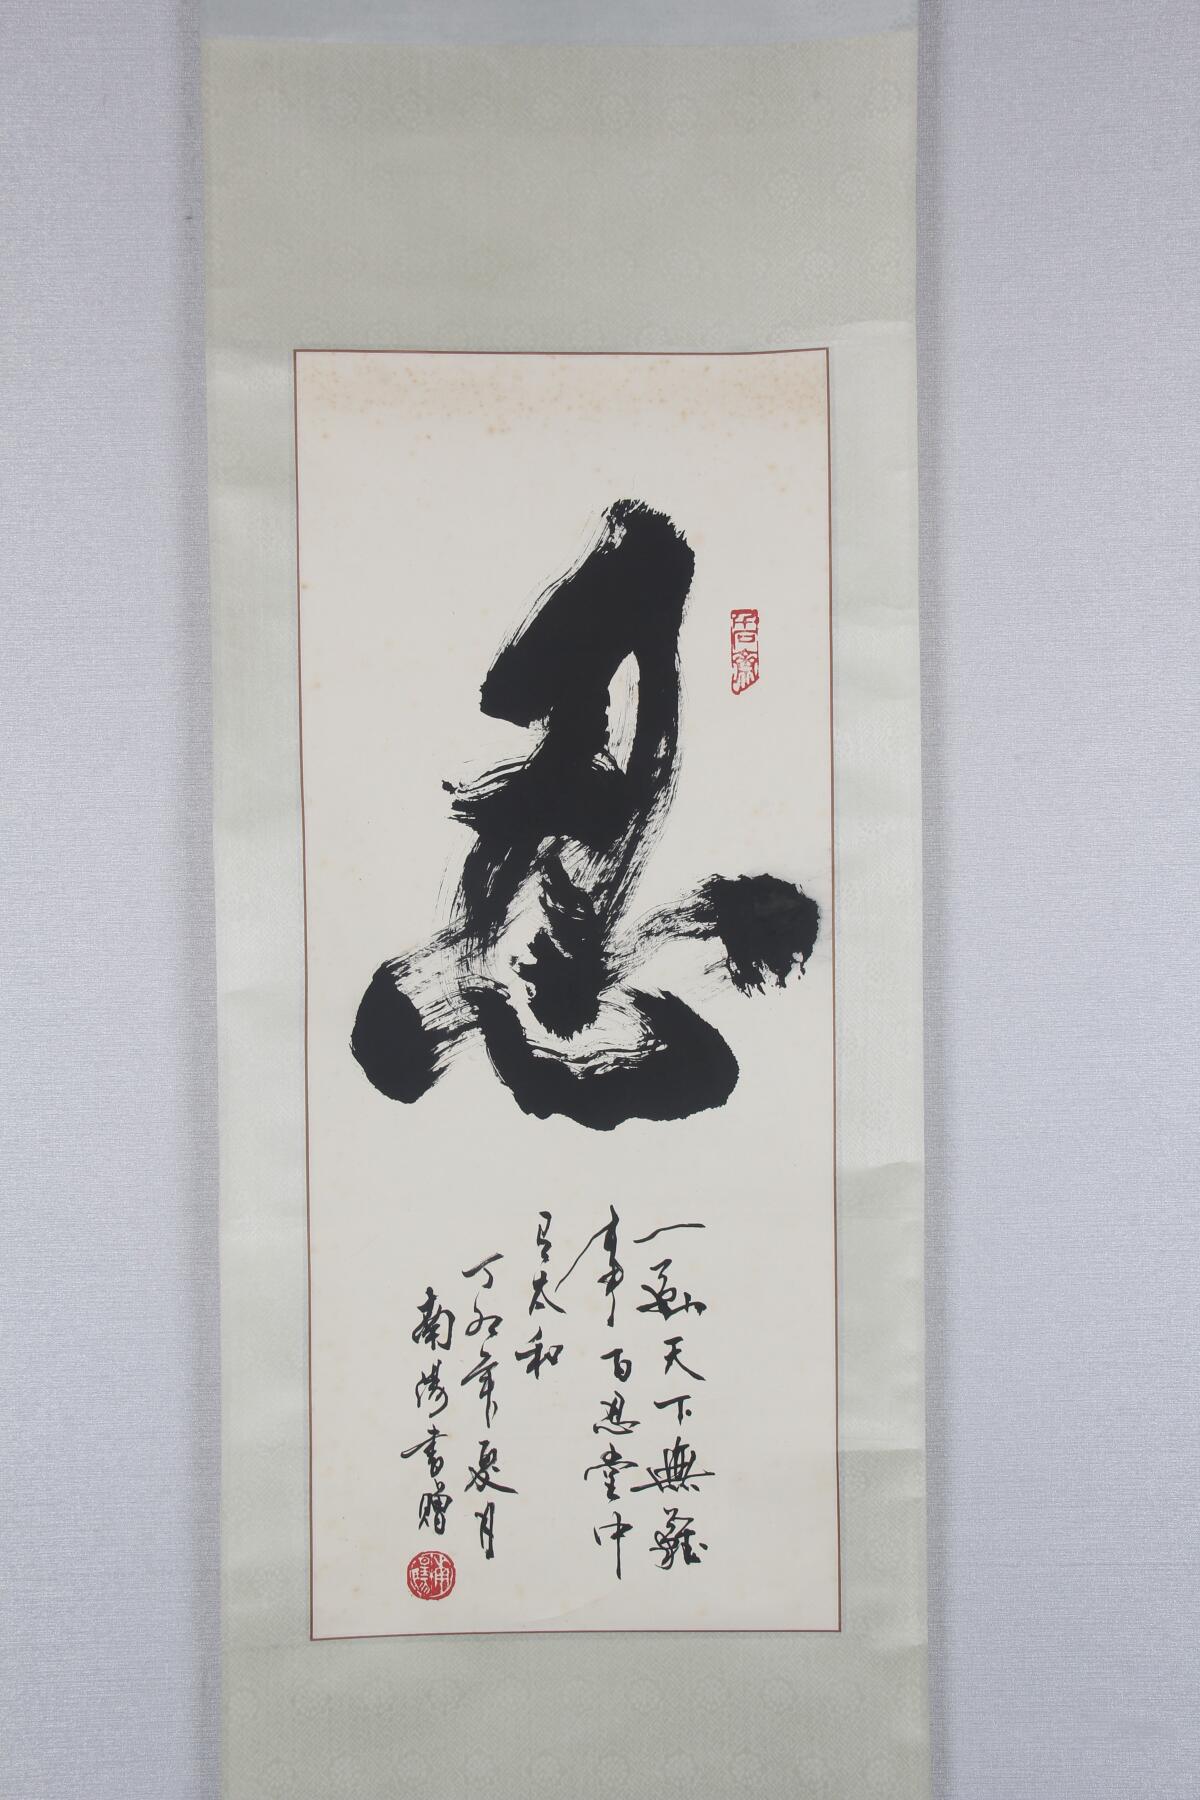 忍
一勤天下無難
事百忍堂中
有太和
丁卯年夏月
南陽書贈